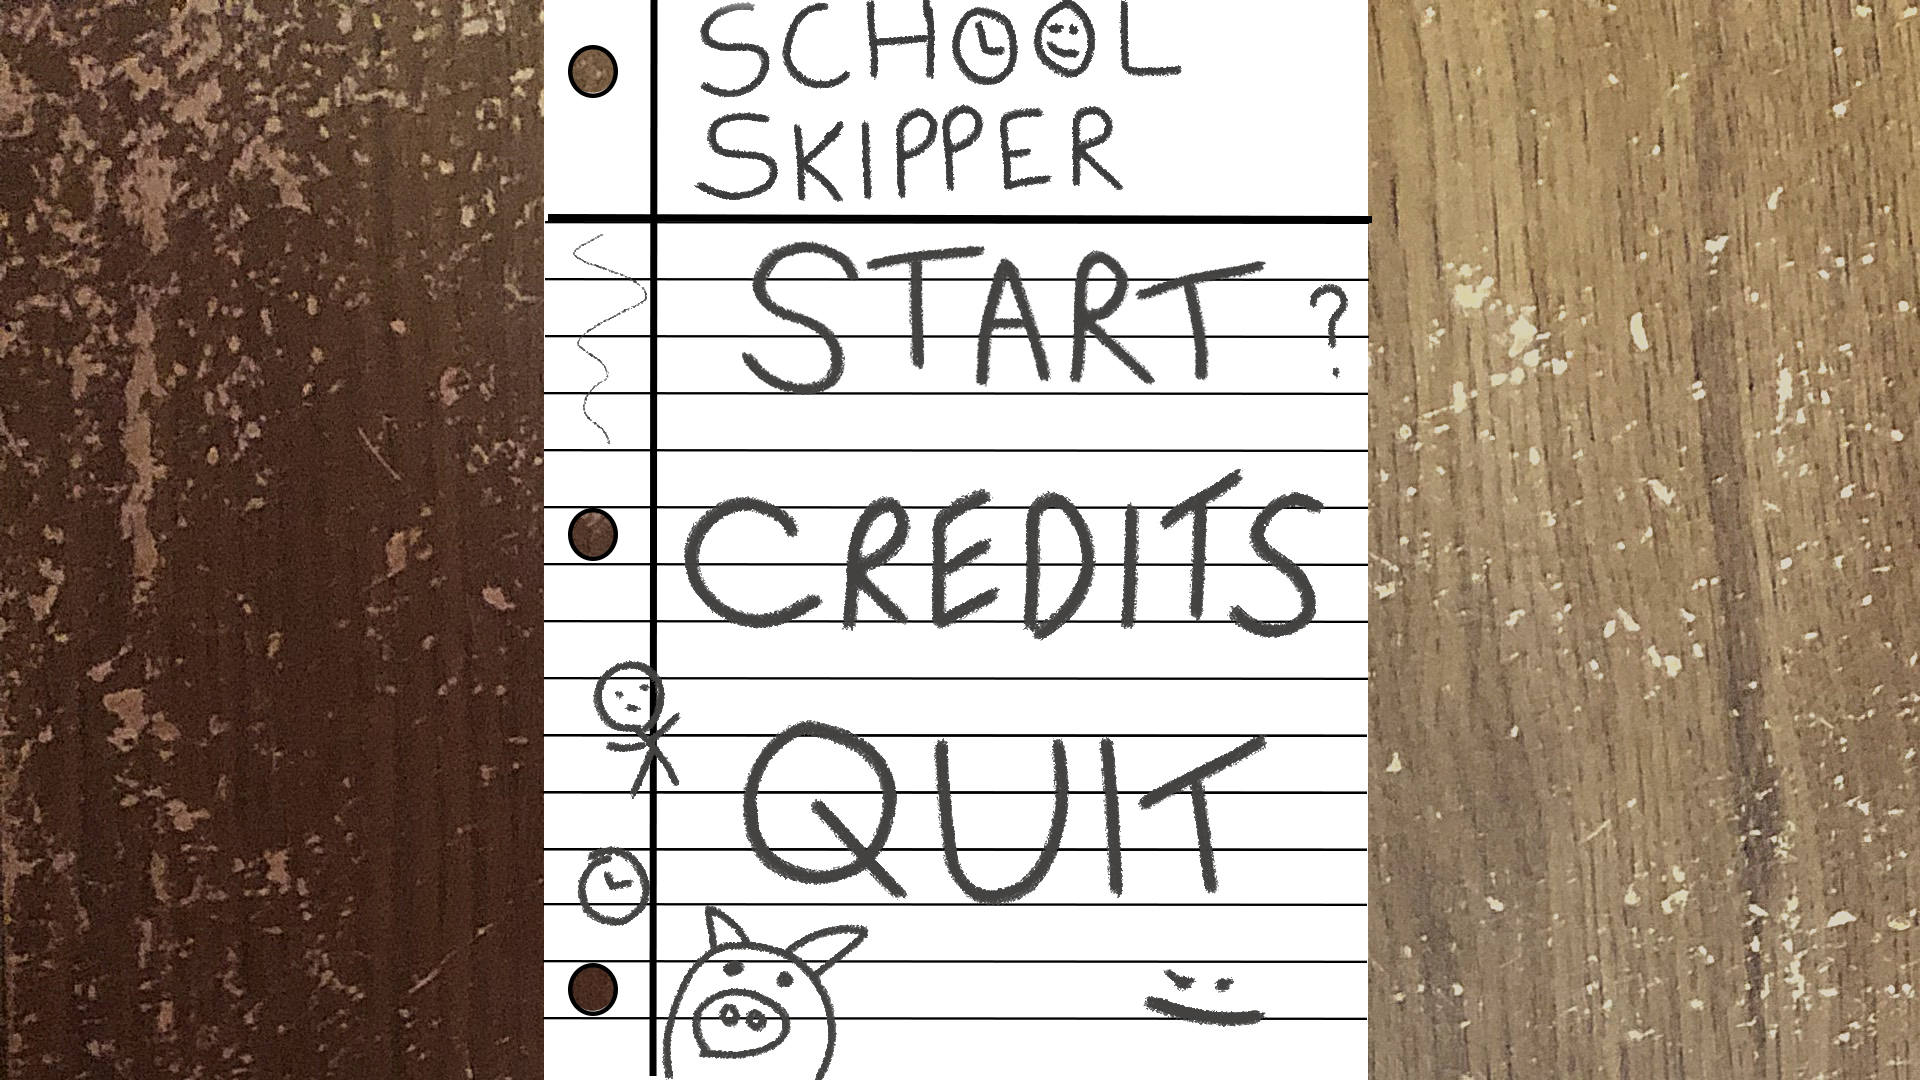 SCHOOL
SKIPPER
START ?
CREDITS
QUIT